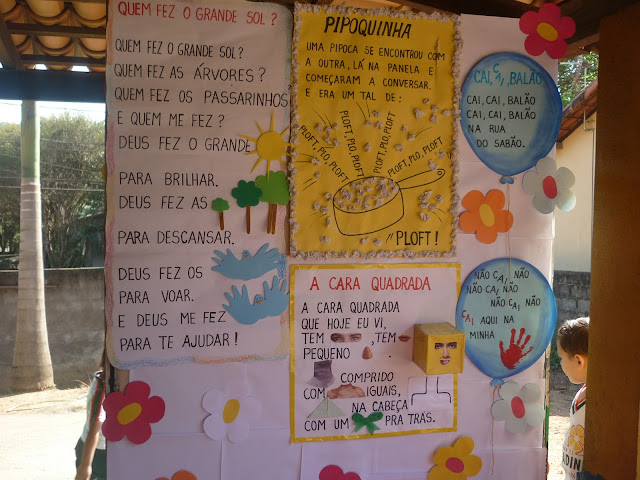 QUEM FEZ O GRANDE SOL ?
QUEM FEZ O GRANDE SOL?
QUEM FEZ AS ÁRVORES?
QUEM FEZ OS PASSARINHOS
E QUEM ME FEZ ?
DEUS FEZ O GRANDE
PARA BRILHAR.
DEUS FEZ AS
PARA DESCANSAR.
DEUS FEZ OS
PARA VOAR.
E DEUS ME FEZ
PARA TE AJUDAR !
PIPOQUINHA
UMA PIPOCA SE ENCONTROU COM
A OUTRA, LÁ NA PANELA E
COMEÇARAM A CONVERSAR.
E ERA UM TAL DE :
PLOFT, PLO, PLOFT
PLOFT, PLO, PLOFT
PLOFT, PLO, PLOFT
PLOFT, PLO, PLOFT
PLOFT !
A CARA QUADRADA
A CARA QUADRADA
QUE HOJE EU VI,
TEM , TEM
PEQUENO .
COMPRIDO
COM IGUAIS,
NA CABEÇA
COM UM PRA TRÁS.
CAI, CAI, BALÃO
CAI, CAI, BALÃO
CAI, CAI, BALÃO
NA RUA
DO SABÃO.
NÃO CAI, NÃO
NÃO CAI, NÃO
NÃO CAI, NÃO
CAI AQUI NA
MINHA